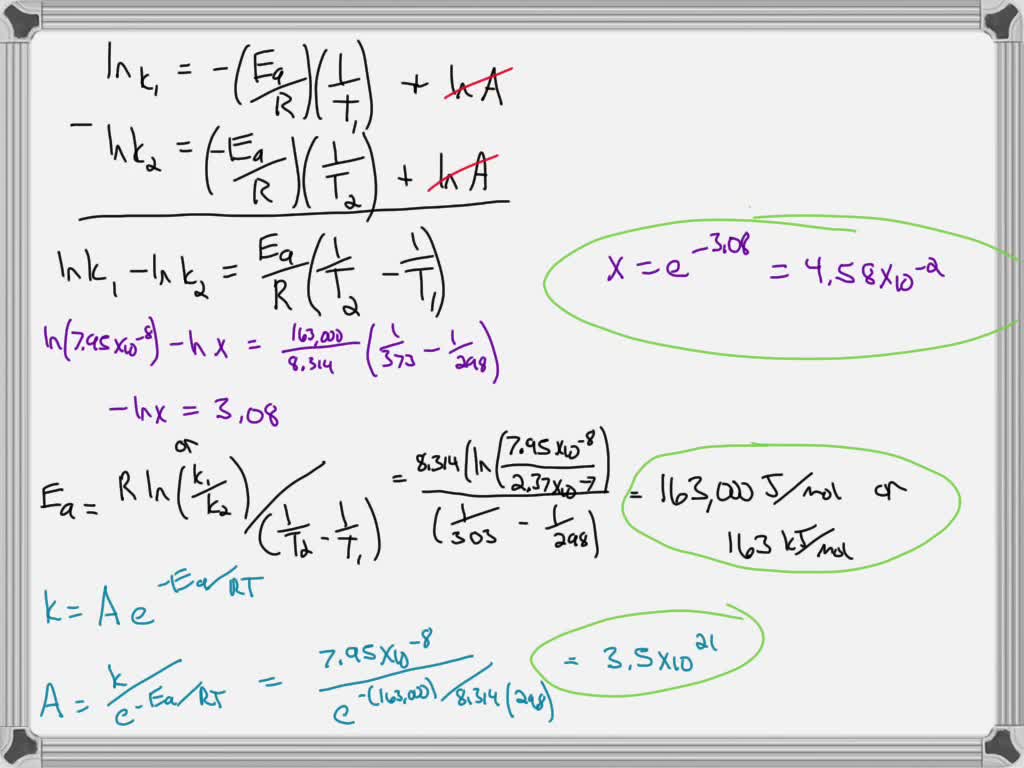 ln k₁ = -(Ea/R)(1/T₁) + ln A
- ln k₂ = (-Ea/R)(1/T₂) + ln A
ln k₁ - ln k₂ = Ea/R (1/T₂ - 1/T₁)
x = e^-3.08 = 4.58x10^-2
ln(7.95x10^-8) - ln x = 163,000/8.314 (1/373 - 1/298)
-ln x = 3.08
or
Ea = R ln(k₁/k₂) / (1/T₂ - 1/T₁) = 8.314(ln(7.95x10^-8/2.37x10^-7)) / (1/303 - 1/298) = 163,000 J/mol or
163 kJ/mol
k = A e^-Ea/RT
A = k / e^-Ea/RT = 7.95x10^-8 / e^-(163,000)/8.314(298) = 3.5x10^21